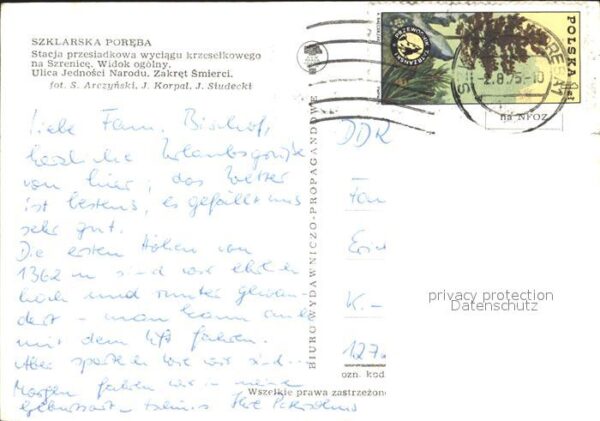 SZKLARSKA PORĘBA
Stacja przesiadkowa wyciągu krzesełkowego
na Szrenicę. Widok ogólny.
Ulica Jedności Narodu. Zakręt Śmierci.
fot. S. Arczyński, J. Korpal, J. Siudecki
Liebe Fam. Bischof,
herzliche Urlaubsgrüße
von hier; das Wetter
ist bestens, es gefällt uns
sehr gut.
Die ersten Höhen von
1362 m sind wir ehrlich
hoch und runter gewan-
dert – man kann auch
mit dem Lift fahren.
Aber sportlich wie wir sind...
Morgen fahren wir – meine
Geburtsort –
BIURO WYDAWNICZO-PROPAGANDOWE
POLSKA
PRZEWODNICY
2.8.75-10
na NFOZ
DDR
Fam
K.-
127
ozn. kod
Wszelkie prawa zastrzeżone
privacy protection
Datenschutz